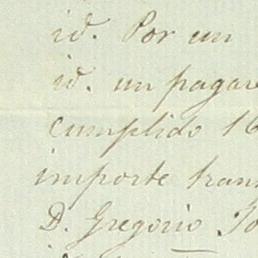 id. Por un
id. un pagaré
cumplido 16
importe tran
D. Gregorio